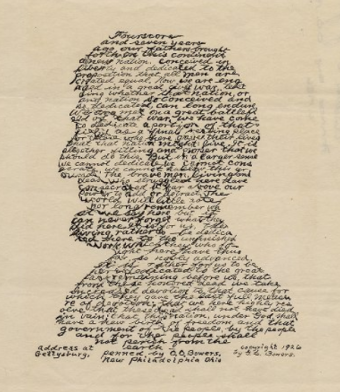 Fourscore
and seven years
ago our fathers brought
forth on this continent
a new nation, conceived in
liberty and dedicated to the
proposition that all men are
created equal. Now we are eng
aged in a great civil war, test
ing whether that nation or
any nation so conceived and
so dedicated can long endure
We are met on a great battlefield
of that war. We have come
to dedicate a portion of that
field as a final resting place
for those who here gave their lives
that that nation might live. It is
altogether fitting and proper that we
should do this. But in a larger sense
we cannot dedicate we cannot conse
crate, we cannot hallow this gro
und. The brave men, living and
dead who struggled here have
consecrated it far above our
power to add or detract. The
world will little note
nor long remember
what we say here but it
can never forget what they
did here. It is for us, the
living rather to be dedica
ted here to the unfinished
work they who
here have thus
so nobly advanced.
It is rather for us to be
here dedicated to the great
task remaining before us, that
from these honored dead we take
increased devotion to that cause for
which they gave the last full measu
re of devotion; that we here highly res
olve that these dead shall not have died
in vain; that this nation, under God, shall
have a new birth of freedom, and that
government of the people, by the people
and for the people, shall
not perish from the
earth
address at
Gettysburg.
penned by O.C. Bowers,
New Philadelphia Ohio
copyright 1926
by O.C. Bowers.